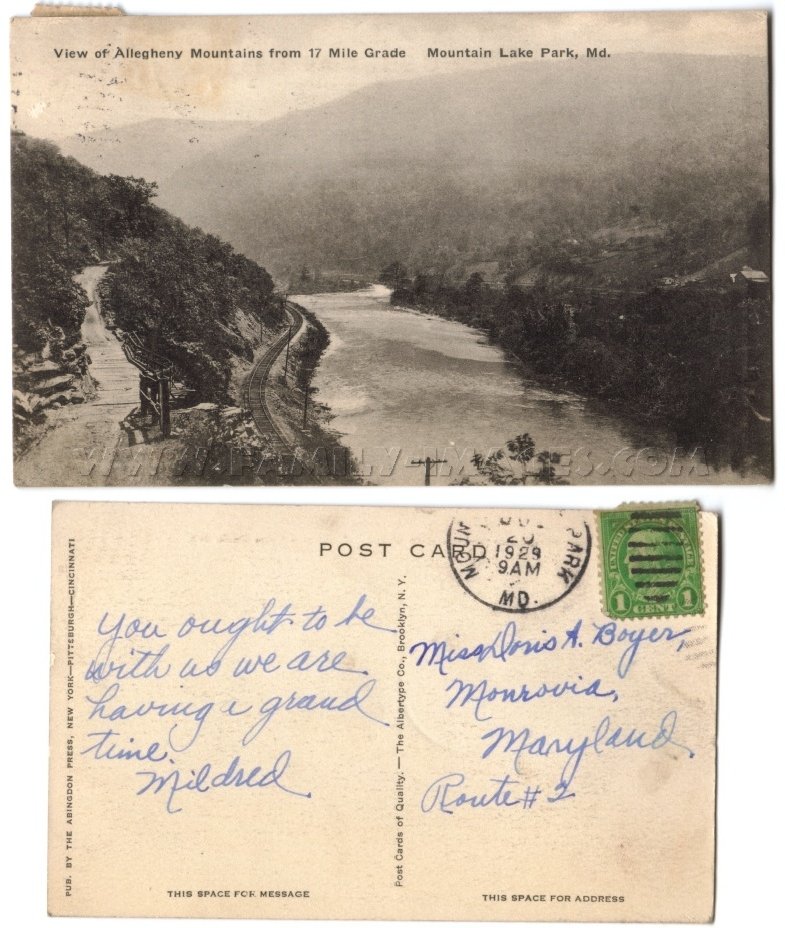 View of Allegheny Mountains from 17 Mile Grade Mountain Lake Park, Md.
WWW.FAMILY-IMAGES.COM
POST CARD
PARK
20
1929
9AM
MD.
UNITED STATES POSTAGE
1 CENT 1
You ought to be
with us we are
having a grand
time.
Mildred
Miss Doris A. Boyer,
Monrovia,
Maryland
Route #2
PUB. BY THE ABINGDON PRESS, NEW YORK—PITTSBURGH—CINCINNATI
Post Cards of Quality. — The Albertype Co., Brooklyn, N. Y.
THIS SPACE FOR MESSAGE
THIS SPACE FOR ADDRESS